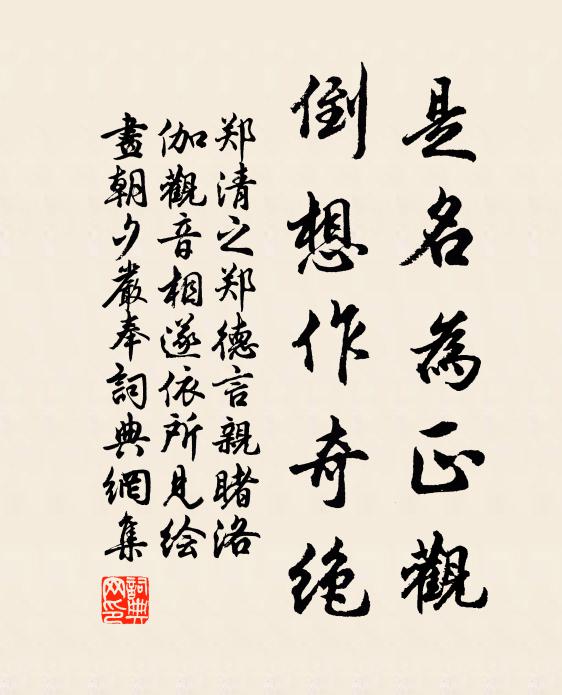 是名為正觀
倒想作奇絶
郑清之郑德言親睹洛
伽觀音相遂依所見绘
畫朝夕嚴奉詞典網集
詞典网印